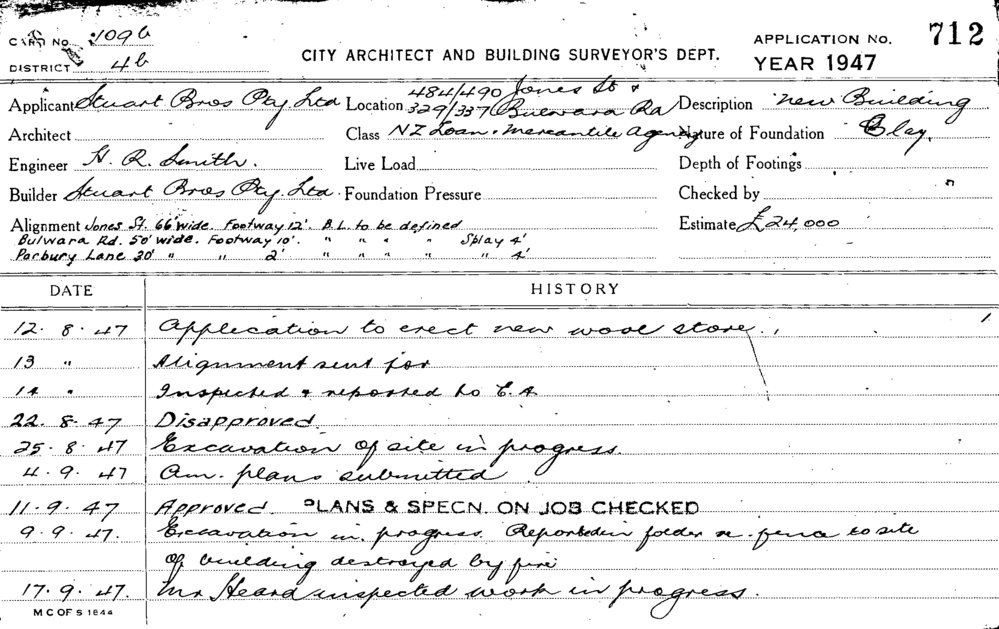 CARD No. 109b
712
DISTRICT 4b
CITY ARCHITECT AND BUILDING SURVEYOR'S DEPT.
APPLICATION No.
YEAR 1947
Applicant Stuart Bros Pty. Ltd Location 484/490 Jones St &
329/337 Bulwara Rd Description New Building
Architect Class NZ Loan & Mercantile Agency Nature of Foundation Clay.
Engineer H. R. Smith. Live Load Depth of Footings
Builder Stuart Bros Pty. Ltd. Foundation Pressure Checked by
Alignment Jones St. 66' wide. Footway 12'. B.L. to be defined Estimate £24,000
Bulwara Rd. 50' wide. Footway 10'. " " " " Splay 4'
Parbury Lane 20' " " 2' " " " " " 4'
DATE HISTORY
12. 8. 47 Application to erect new wool store.
13 " Alignment sent for
14 " Inspected & reported to C.A.
22. 8. 47 Disapproved.
25. 8. 47 Excavation of site in progress.
4. 9. 47 Am. plans submitted
11. 9. 47 Approved. PLANS & SPECN. ON JOB CHECKED
9. 9. 47. Excavation in progress. Reported in folder re fence to site
of building destroyed by fire
17. 9. 47. Mr Heard inspected work in progress.
M C OF S 1844